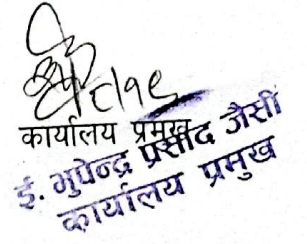 कार्यालय प्रमुख
ई. भुपेन्द्र प्रसाद जैसी
कार्यालय प्रमुख